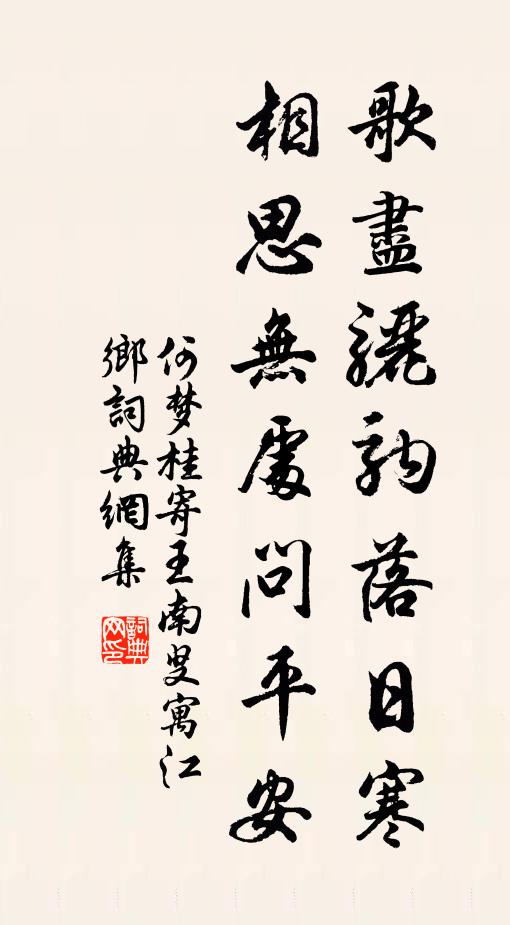 歌盡驪駒落日寒
相思無處問平安
何梦桂寄王南叟寓江
鄉詞典網集
詞典
网印